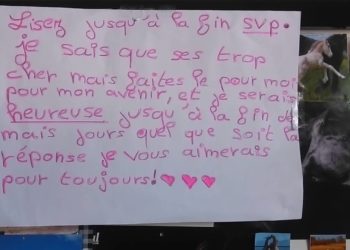 Lisez jusqu'à la fin svp.
je sais que ses trop
cher mais faites le pour moi
pour mon avenir, et je serais
heureuse jusqu'à la fin de
mais jours quel que soit la
réponse je vous aimerais
pour toujours! ♥ ♥ ♥